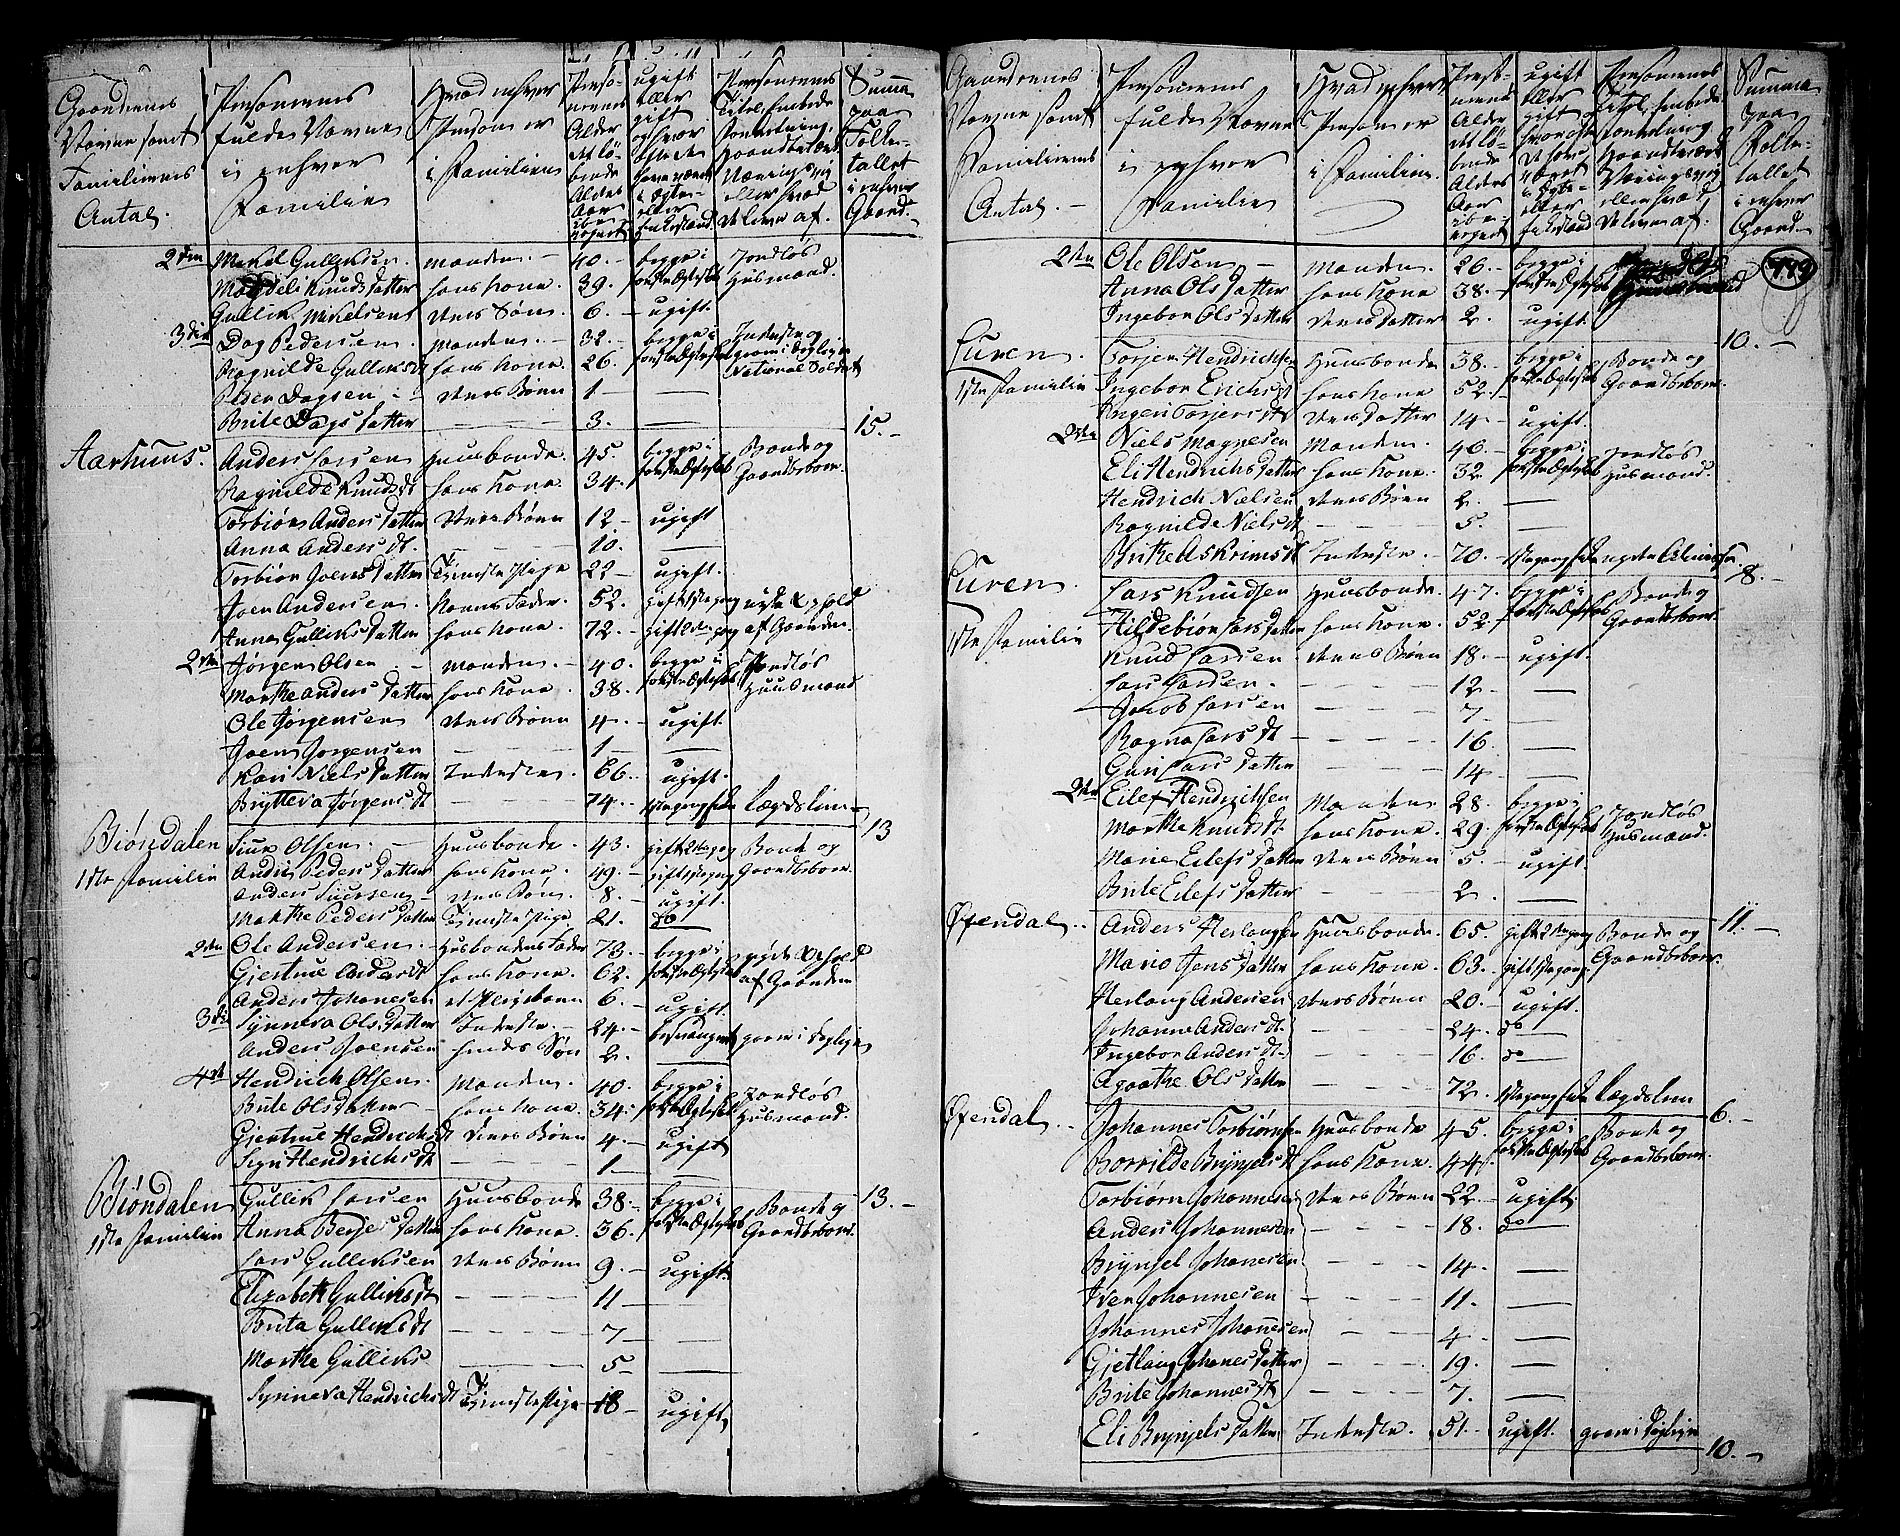 Gaardenes Navne samt Familiernes Antal. Personernes fulde Navne i enhver Familie Hvad enhver Person er i Familien Personernes Alder det løbende Alders Aar iberegnet ugift eller gift og hvor ofte de have været i Ægte- eller Enkestand Personernes Titel, Embede Forretning, Haandværk Næringsvej eller hvad de lever af. Summa paa Folketallet i enhver Gaard.
2den Mikel Gulliksen. Manden. 40. begge i første Ægteskab Jordløs Huusmand.
Magdeli Knuds datter hans Kone. 39.
Gullik Mikelsen deres Søn. 6. ugift.
3die Dag Pedersen. Manden. 32. begge i første Ægteskab Inderste og National Soldat
Ragnilde Gulliks dt hans Kone. 26.
Peder Dagsen deres Børn 1
Brite Dags datter 3. 15.
Aarhuus. Anders Larsen Huusbonde. 45. begge i første Ægteskab Bonde og Gaardbeboer.
Ragnilde Knuds dt hans Kone. 34.
Torbiør Anders datter deres Børn 12 ugift
Anna Anders dt. 10.
Torbiør Joens datter Tieneste Pige 22 ugift.
Joen Andersen. Konens Fader. 52. gift 1ste gang
Anna Gulliks datter hans Kone. 72. gift 2den gang af Gaarden.
2den Jørgen Olsen Manden. 40. begge i første Ægteskab Jordløs Huusmand
Marthe Anders datter hans Kone. 38.
Ole Jørgensen deres Børn 4. ugift.
Joen Jørgensen 1
Kari Niels datter Inderste. 66. ugift.
Brytteva Jørgens dt 74. 1ste gang Enke Lægdslem
Biøndalen 1ste Familie Siur Olsen. Huusbonde. 43. gift 2den gang Bonde og Gaardbeboer. 13
Peders datter hans Kone. 49. gift 1ste gang
Anders Siursen deres Søn. 8. ugift.
Marthe Peders datter Tieneste Pige 21. do
2den Ole Andersen. Husbondens Fader 73. begge i første Ægteskab af Gaarden
Giertrue Anders dt hans Kone. 62.
Anders Johanesen et Pleiebarn 6. ugift.
3die Synneva Ols datter Inderste. 24.
Anders Joensen hendes Søn 2.
4de Hendrich Olsen. Manden. 40. begge i første Ægteskab Jordløs Huusmand.
Brite Olsdatter hans Kone. 34.
Giertrue Hendrichs dt deres Børn 4. ugift
Siri Hendrichs dt 1
Biøndalen 1ste Familie Gullik Larsen Huusbonde 38. begge i første Ægteskab Bonde og Gaardbeboer. 13.
Anna Berjes datter hans Kone. 36.
Lars Gulliksen deres Børn 9. ugift.
Elizabeth Gulliks dt 11
Gulliks dt 7
Marthe Gulliks 5
Synneva Hendrichs dt Tieneste Pige 18 ugift
Gaardenes Navne samt Familiernes Antal. Personernes fulde Navne i enhver Familie Hvad enhver Person er i Familien. Personernes Alder det løbende Alders Aar iberegnet ugift eller gift og hvor ofte de have været i Ægte- eller Enkestand Personernes Titel, Embede Forretning Haandværk Næringsvej eller hvad de lever af. Summa paa Folketallet i enhver Gaard
2den Ole Olsen Manden. 26. begge i første Ægteskab
Anna Ols datter hans Kone. 38.
Ingebor Ols datter deres datter 2. ugift. 10.
Euren. 1ste Familie Torjer Hendrichsen Huusbonde 38. begge i første Ægteskab Bonde og Gaardbeboer.
Ingebor Erichs dt hans Kone. 52.
Ingeri Torjers dt deres datter 14 ugift.
2den Niels Magnesen Manden. 46. begge i første Ægteskab Jordløs Husmand.
Eli Hendrichs datter hans Kone. 32
Hendrich Nielsen deres Børn 2.
Ragnilde Niels dt 5.
Brithe Askrims dt Inderste. 70. 1ste gang Enke 8.
Euren 1ste Familie Lars Knudsen Huusbonde. 47. begge i første Ægteskab Bonde og Gaardbeboer.
Hildebiør Lars datter hans Kone. 52
Knud Larsen deres Børn 18. ugift.
Lars Larsen. 12
Jacob Larsen 7
Ragna Lars dt 16
Guri Lars datter 14
2den Eilef Hendrichsen Manden 28. begge i første Ægteskab Jordløs Husmand.
Marthe Knuds dt hans Kone. 29.
Marie Eilefs datter deres Børn 5. ugift.
Brite Eilefs datter 2. 11.
Øfendal. Anders Herlougsen Huusbonde. 65. gift 2den gang Bonde og Gaardbeboer.
Mario Jens datter hans Kone. 63. gift 1ste gang
Herloug Andersen deres Børn 20. ugift
Johanne Anders dt. 24. do
Ingebor Anders dt. 16. do
Agathe Ols datter 72. 1ste gang Enke Lægdslem 6.
Øfendal. Johannes Torbiørnsen Huusbonde 45. begge i første Ægteskab Bonde og Gaardbeboer.
Borrilde Brynjels dt hans Kone. 44.
Torbiørn Johannesen deres Børn 22. ugift
Anders Johannesen 18. do
Brynjel Johanesen 14.
Iver Johannesen 11.
Johannes Johanesen 4
Gjetlaug Johanes datter 19.
Brite Johannes dt 7.
Eli Brynjels datter Inderste. 51. ugift. 10.